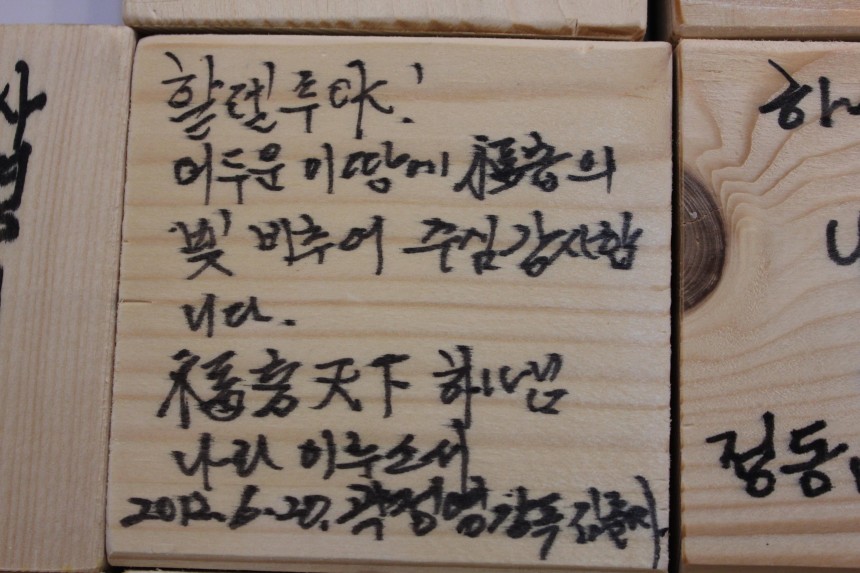 할렐루야!
어두운 이 땅에 福音의
빛 비추어 주심 감사합
니다.
福音天下 하나님
나라 이루소서
2012. 6. 20.
하
정동